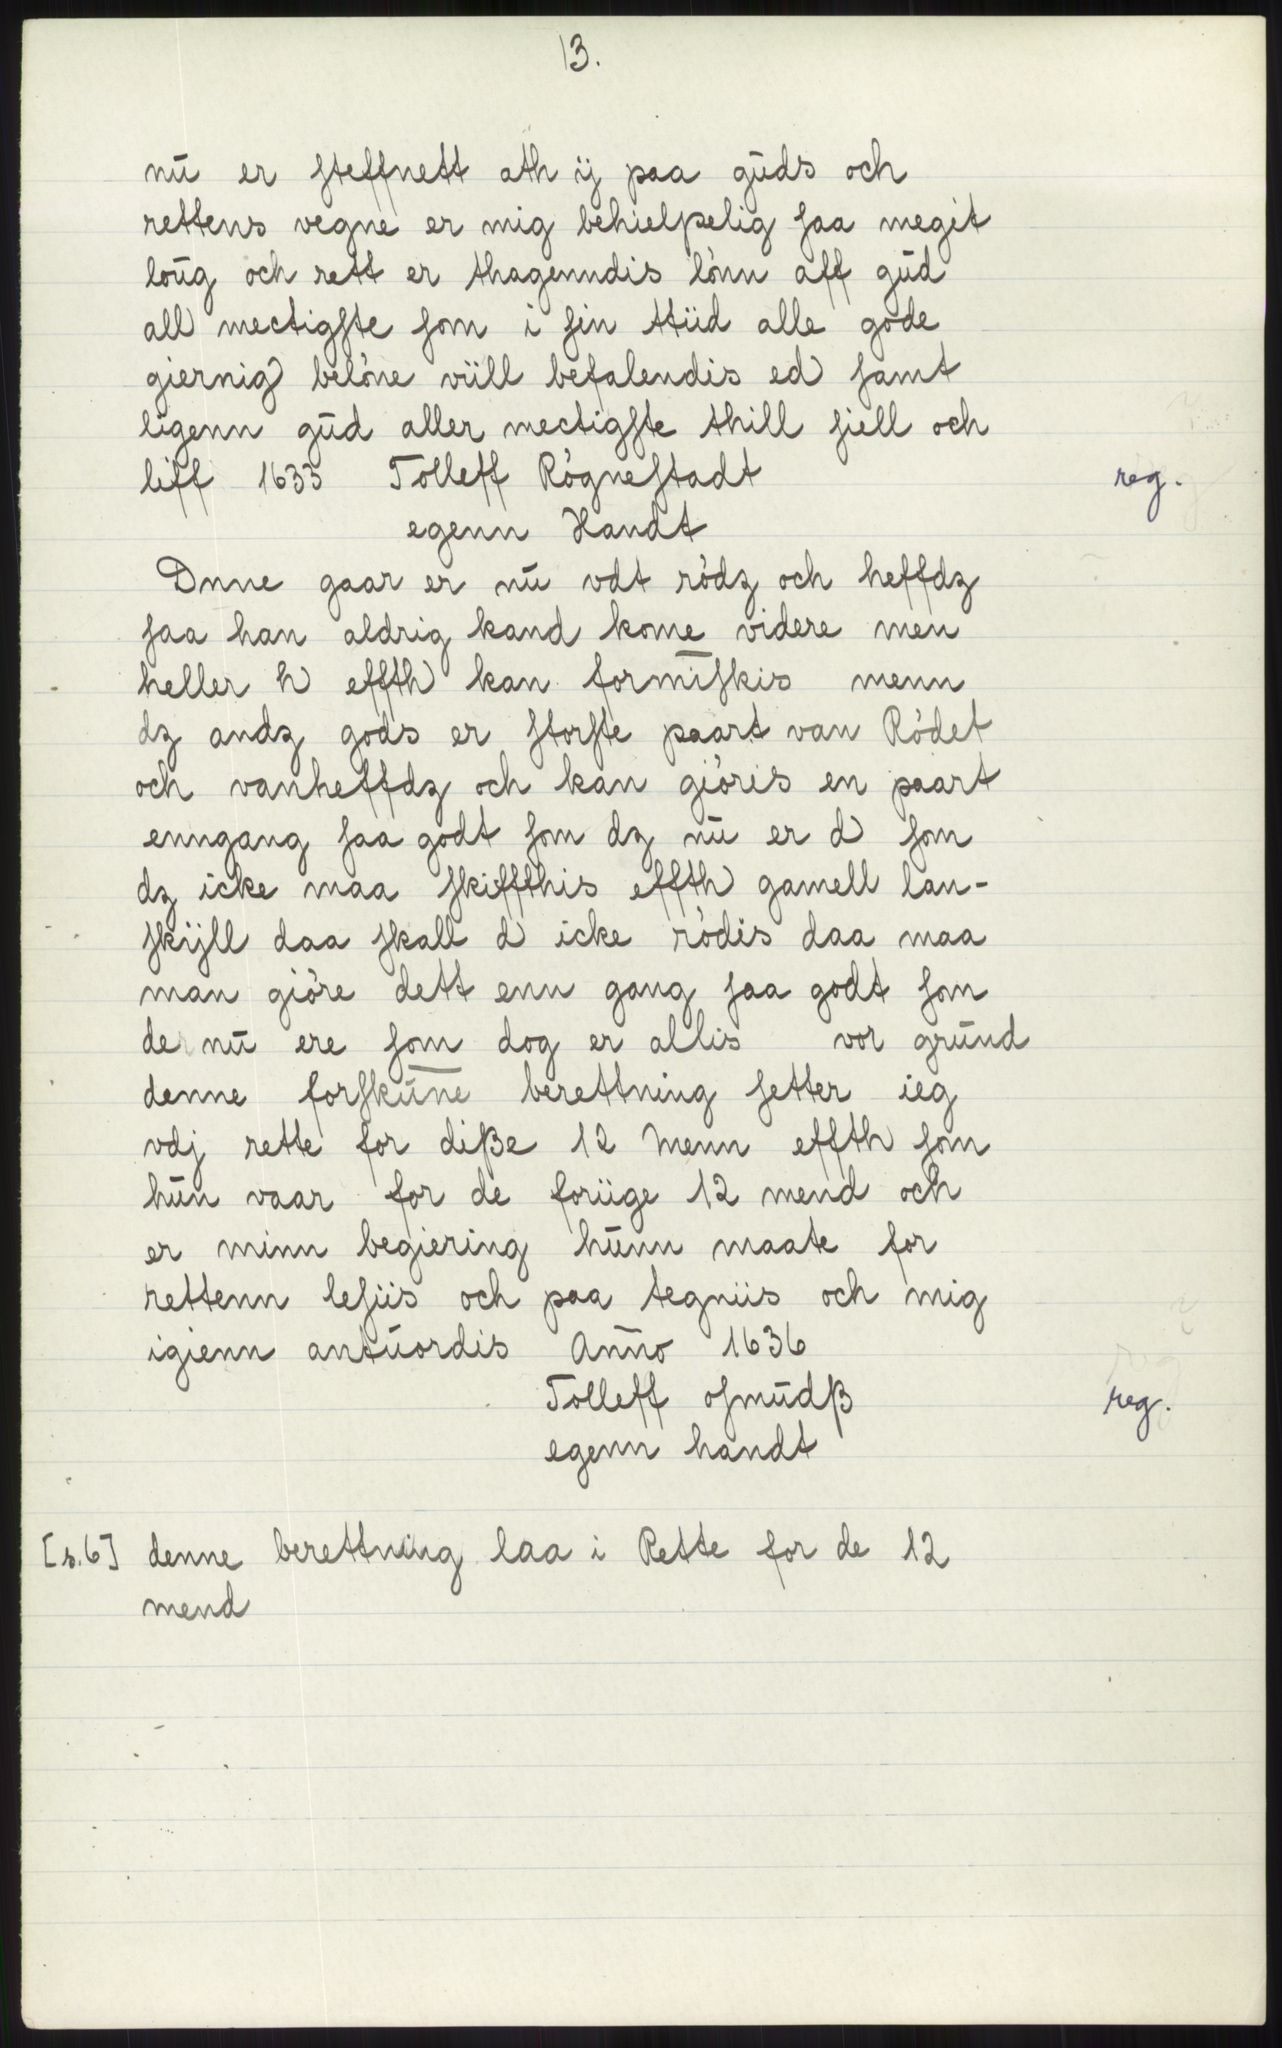 13.
nū er steffnett ath ij paa gūds och
rettens vegne er mig behielpelig saa megit
loūg och rett er thagenndis lónn aff gūd
all mectigste som i sin ttiid alle gode
giernig belóne viill befalendis ed samt
ligenn gūd aller mectigste thill siell och
liff 1633 Tolleff Rógnestadt reg.
egenn Handt
Dnne gaar er nū vdt ródz och heffdz
saa han aldrig kand kome videre men
heller h effth kan formīskis menn
dz andz gods er storste paart van Ródet
och vanheffdz och kan gióris en paart
enngang saa godt som dz nū er d som
dz icke maa skiffthis effth gamell lan-
skijll daa skall d icke ródis daa maa
man gióre dett enn gang saa godt som
de nū ere som dog er allis vor grūnd
denne forskūne berettning setter ieg
vdj rette for diße 12 Menn effth som
hūn vaar for de foriige 12 mend och
er minn begiering hūnn maate for
rettenn lesiis och paa tegniis och mig
igienn antūordis Anno 1636
Tolleff osmūdß reg.
egenn handt
[s.6] denne berettning laa i Rette for de 12
mend